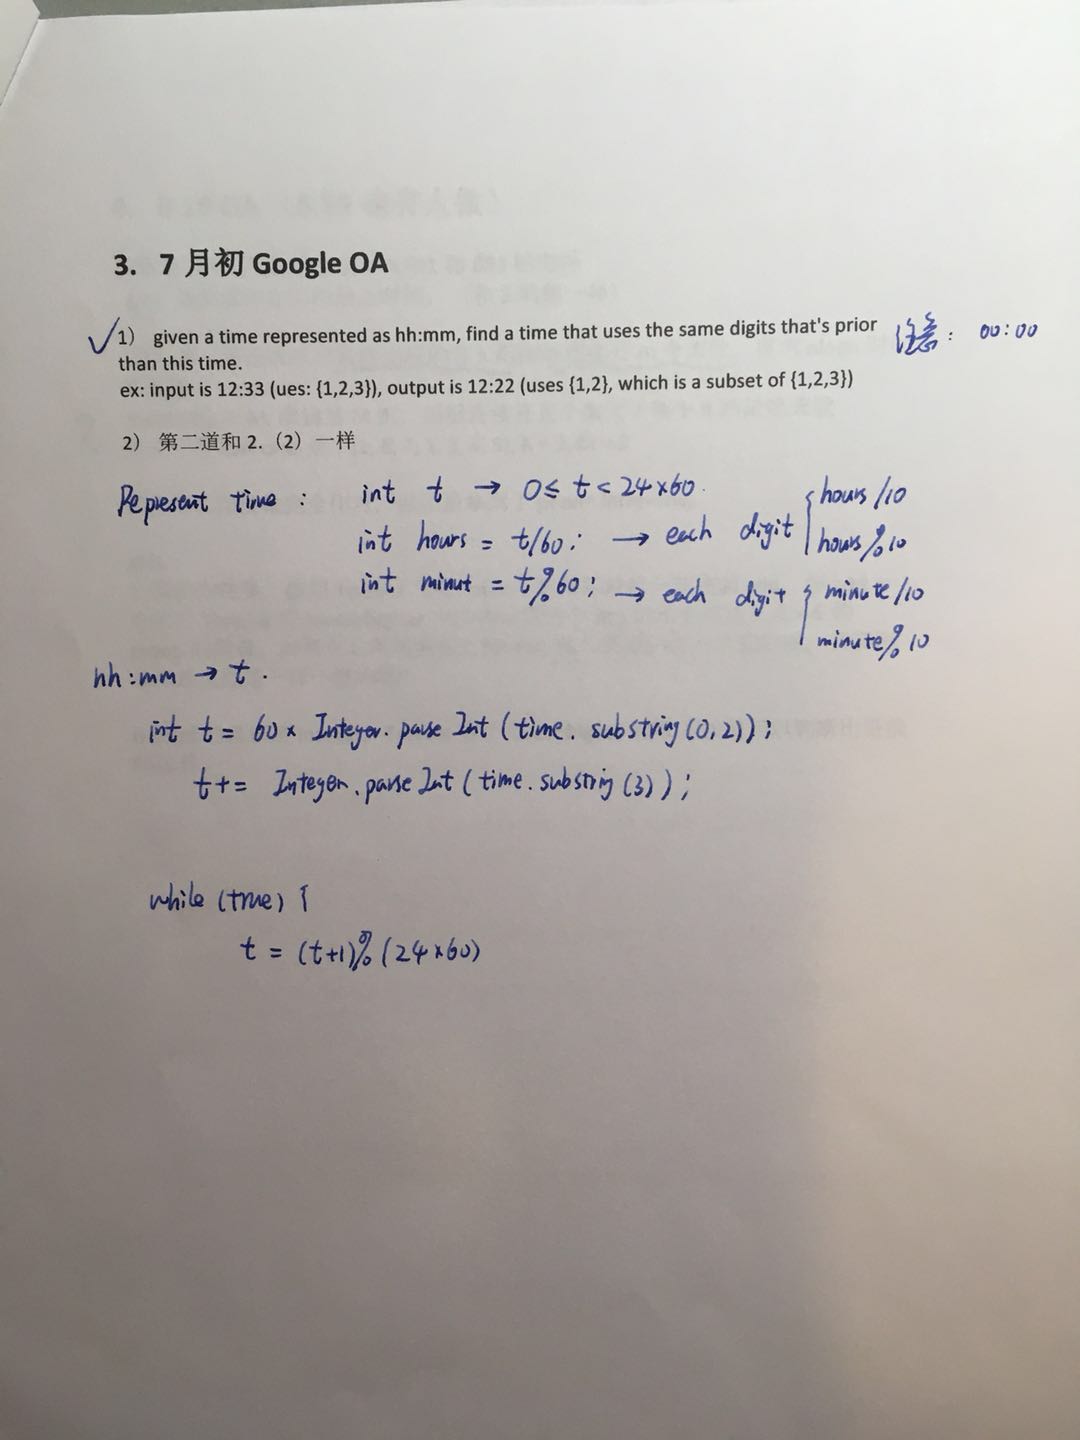 3. 7 月初 Google OA
1) given a time represented as hh:mm, find a time that uses the same digits that's prior 注意: 00:00
than this time.
ex: input is 12:33 (ues: {1,2,3}), output is 12:22 (uses {1,2}, which is a subset of {1,2,3})
2) 第二道和 2.(2)一样
Represent time : int t → 0 ≤ t < 24×60.
int hours = t/60; → each digit { hours /10
hours % 10
int minut = t%60; → each digit { minute /10
minute % 10
hh:mm → t.
int t = 60 × Integer.parseInt(time.substring(0,2));
t+= Integer.parseInt(time.substring(3));
while (true) {
t = (t+1)%(24×60)